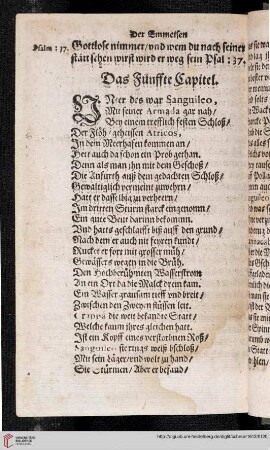 Der Emmeisen
Psalm : 37.
Gottlose nimmer/ vnd wem du nach seiner
stätt sehen wirst wird er weg sein Psal : 37.
Das Fünffte Capitel.
VNter des war Sanguileo,
Mit seiner Armada gar nah/
Bey einem trefflich festen Schloß/
Der Flöh/ geheissen Atticos,
In dem Meerhafen kommen an/
Hett auch da schon ein Prob gethan.
Denn als man ihn mit dem Geschoß/
Die Anfurth auß dem gedachten Schloß/
Gewaltiglich vermeint zuwehrn/
Hatt er dasselbig zu verheern/
Im dritten Sturm starck eingenomn/
Ein gute Beut darinn bekommn.
Vnd hatts geschleifft biß auff den grund/
Nach dem er auch nit feyren kundt/
Rucket er fort mit grosser müh/
Gewässers wegen in die Brüh.
Den Hochberühmten Wasserstrom
In ein Ort da die Malck drein kam.
Ein Wasser grausem tieff vnd breit/
Zwischen den Zweyen flüssen leit.
die weit bekandte Statt/
Welche kaum ihres gleichen hatt.
Ist ein Kopff eines verstornen Roß/
Sanguileo sie rings weiß bschloß/
Mit sein Läger/ vnd wolt zu hand/
Sie Stürmen/ Aber er befand/